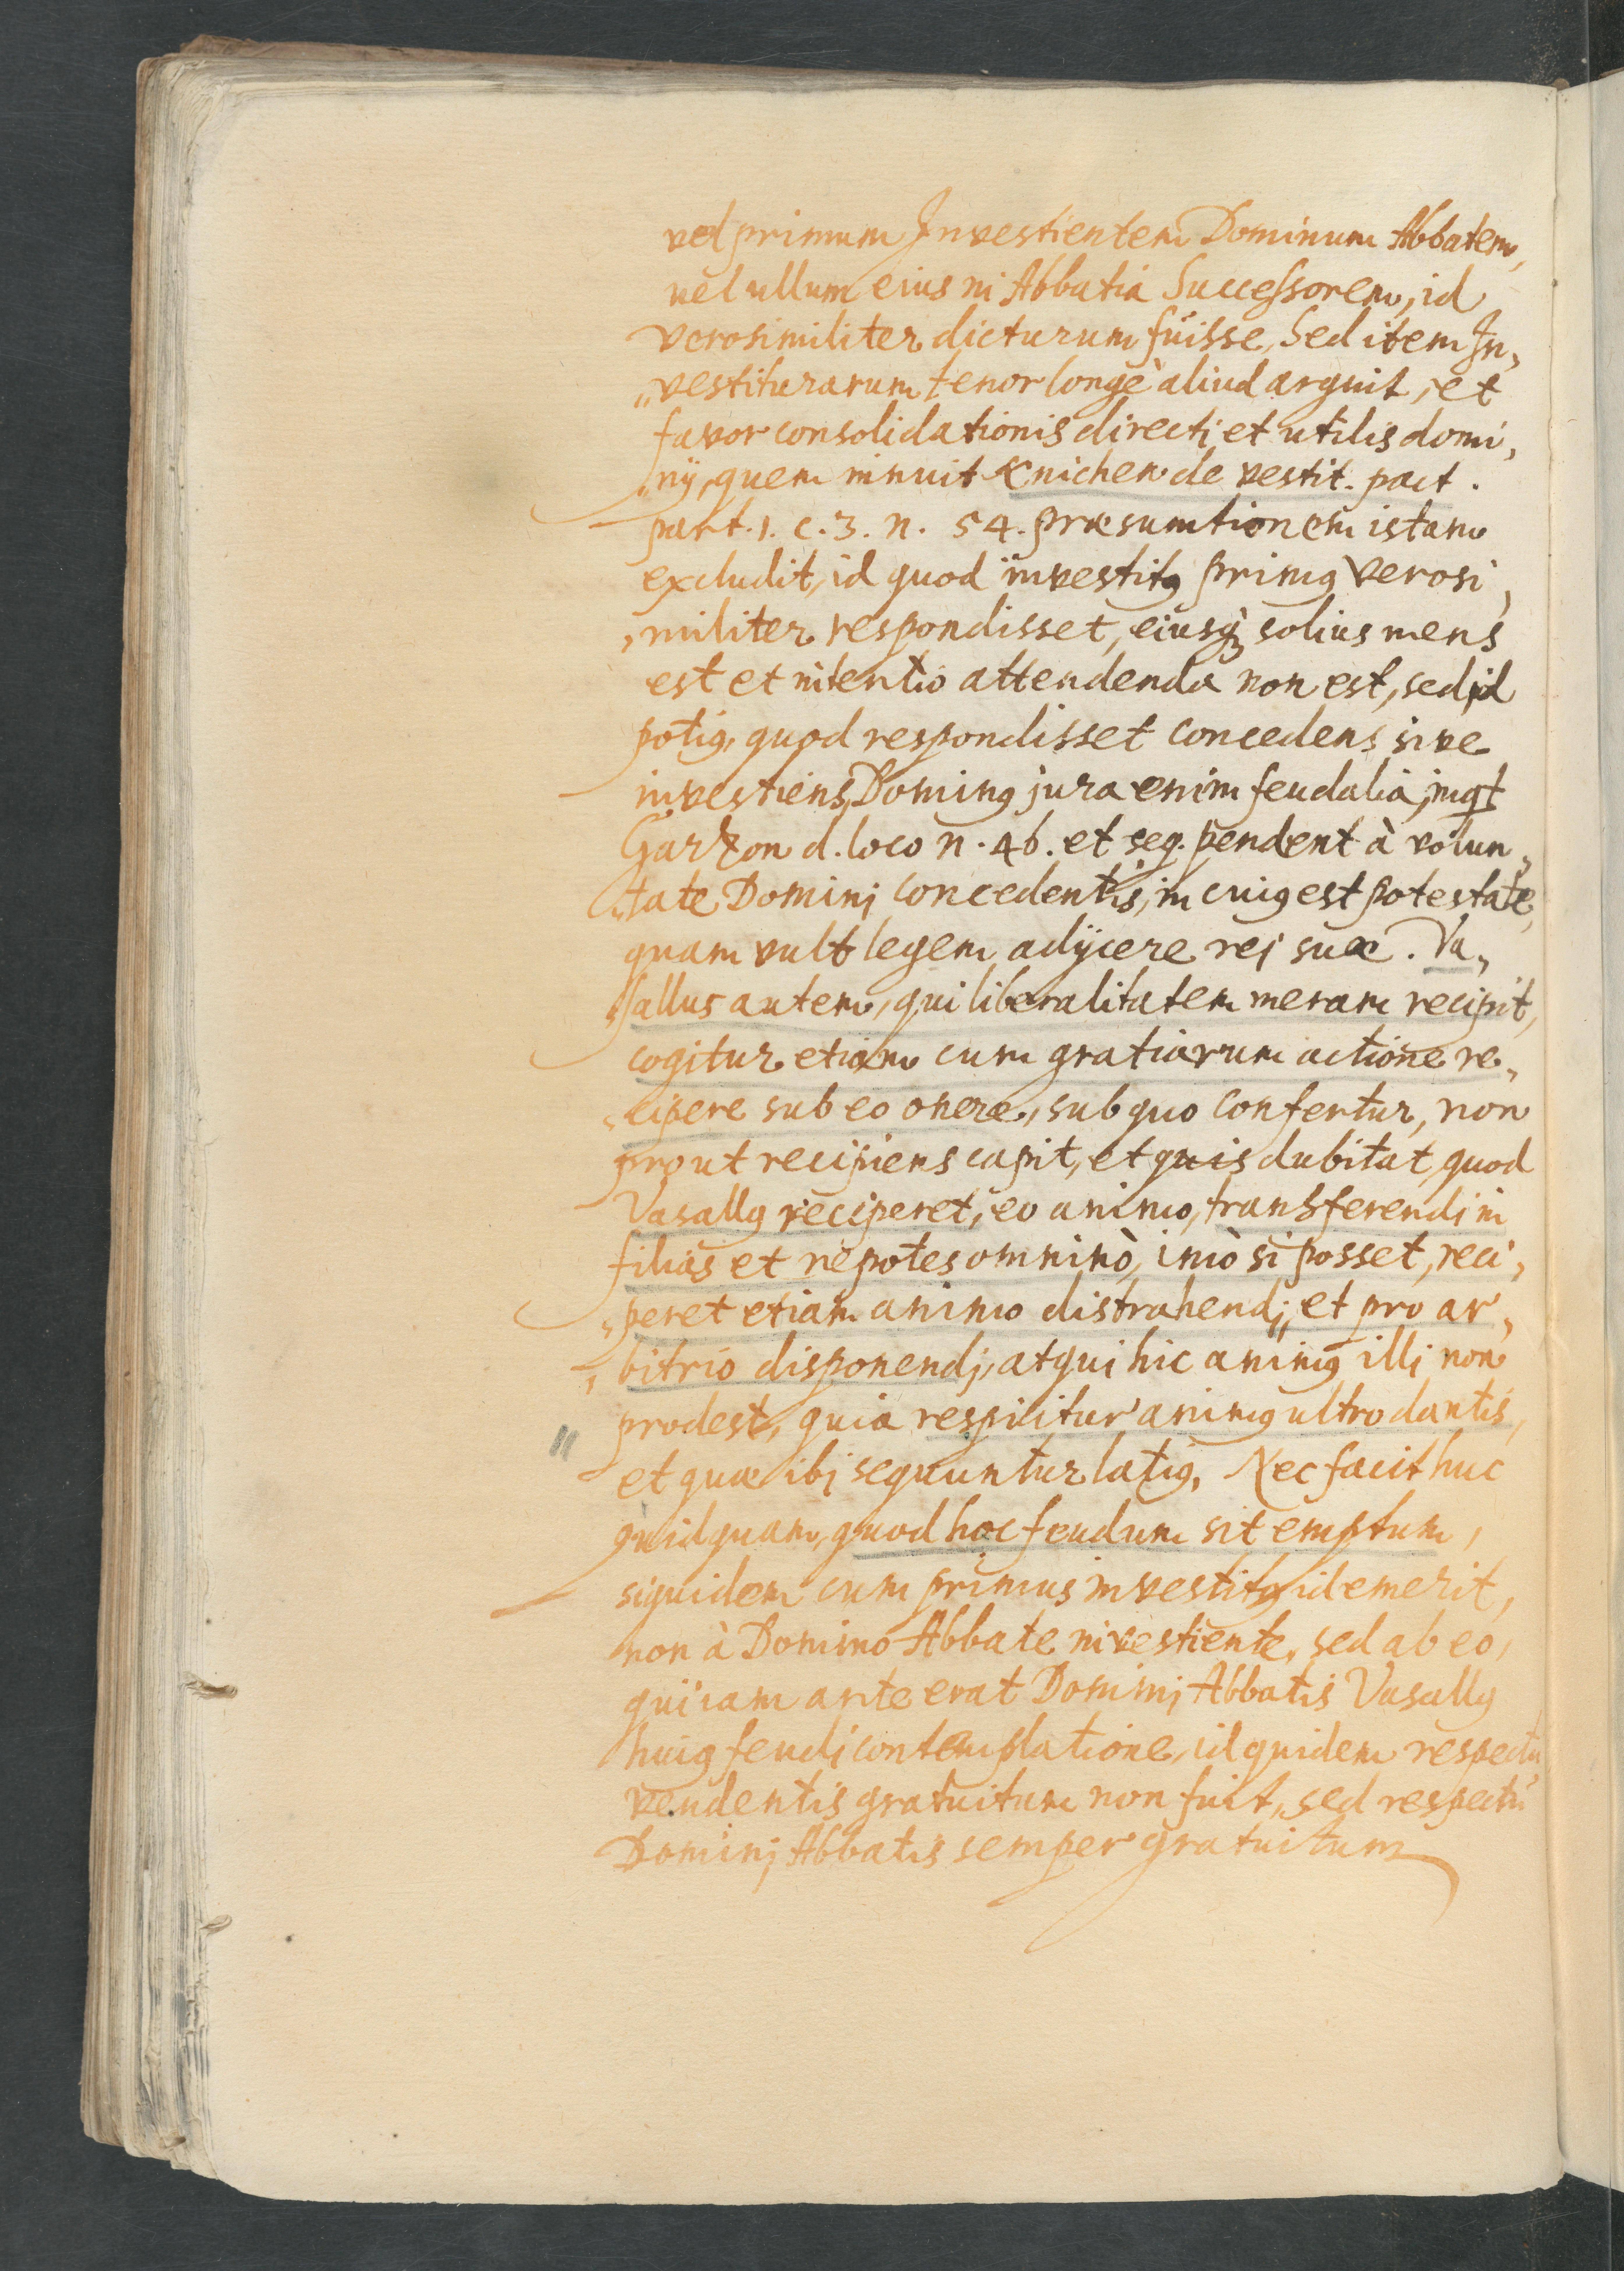 vel primum Investientem Dominum Abbatem,
vel ullum eius in Abbatia Successorem, id
verosimiliter dicturum fuisse, Sed item In„
„vestiturarum tenor longè aliud arguit, et
favor consolidationis directi et utilis domi„
„nij, quem innuit Knichen de vestit. pact.
part. 1. c. 3. n. 54. præsumtionem istam
excludit, id quod investitꝰ primꝰ verosi„
„militer respondisset, eiusq; solius mens
est et intentio attendenda non est, sed id
potiꝰ, quod respondisset concedens sive
investiens Dominꝰ jura enim feudalia, inqt
Garzon d. loco n. 46. et seq. pendent à volun„
„tate Domini concedentis, in cuiꝰ est potestate,
quam vult legem adijcere rei suæ. Va„
„sallus autem, qui liberalitatem meram recipit,
cogitur etiam cum gratiarum actione re„
„cipere sub eo onere, sub quo confertur, non
prout recipiens capit, et quis dubitat, quod
Vasallꝰ reciperet, eo animo, transferendi in
filias et nepotes omninò, imò si posset, reci„
„peret etiam animo distrahendi, et pro ar„
„bitrio disponendi, atqui hic animꝰ illi non
prodest, quia respicitur animꝰ ultro dantis,
et quæ ibi sequuntur latiꝰ. Nec facit huc
quidquam, quod hoc feudum sit emptum,
siquidem cum primus investitꝰ id emerit,
non à Domino Abbate investiente, sed ab eo,
qui iam ante erat Domini Abbatis Vasallꝰ
huiꝰ feudi contemplatione, id quidem respectu
vendentis gratuitum non fuit, sed respectu
Domini Abbatis semper gratuitum